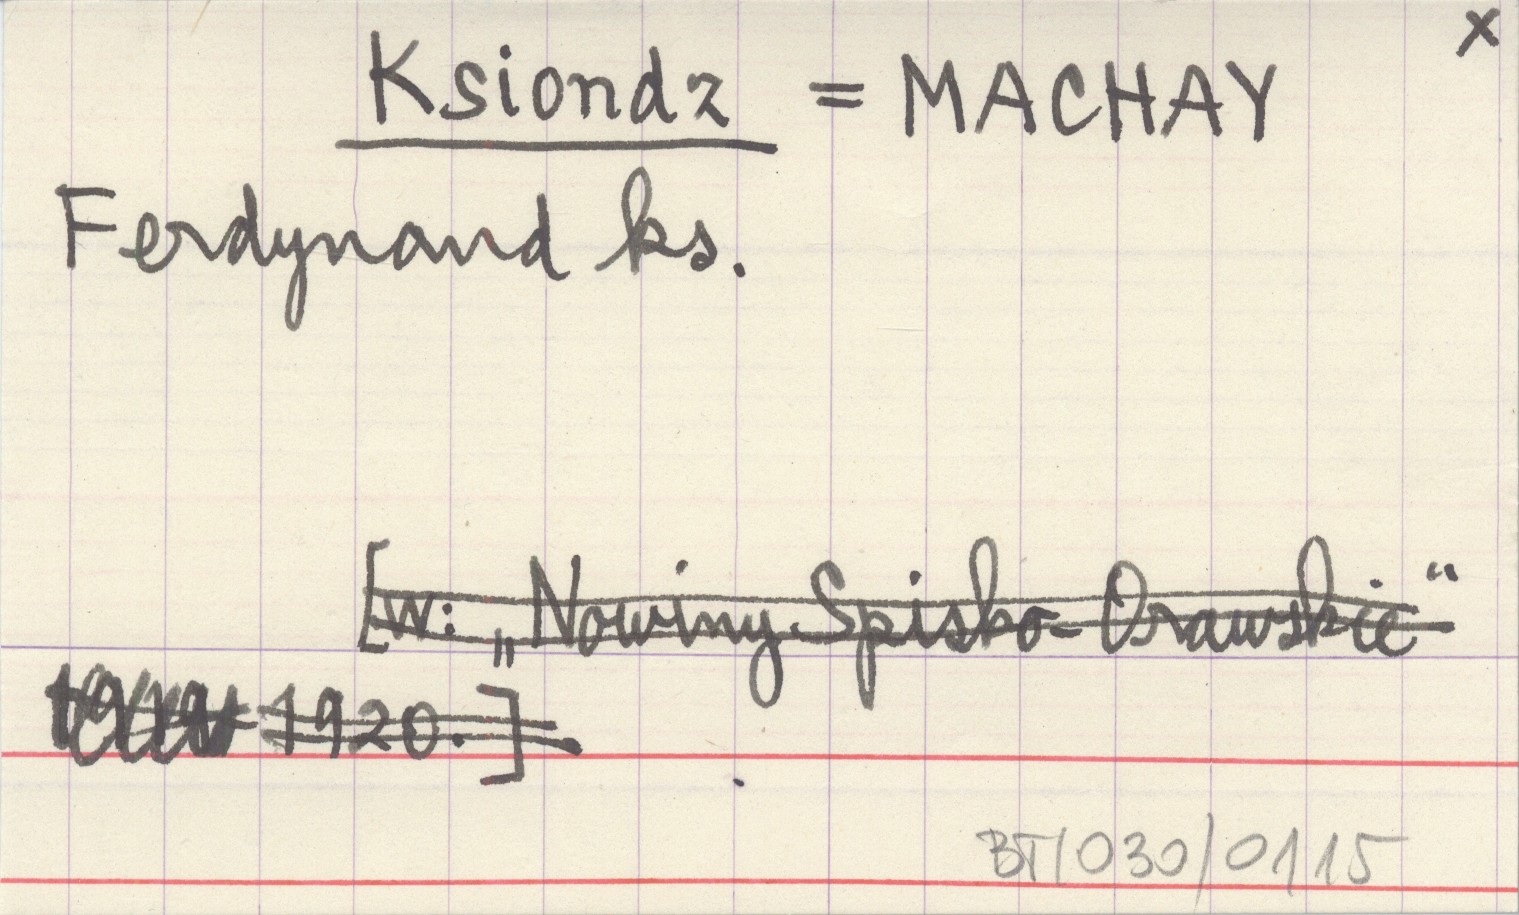 x
Ksiondz = MACHAY
Ferdynand ks.
[w: „Nowiny Spisko-Orawskie“
1920.]
BT/030/0115